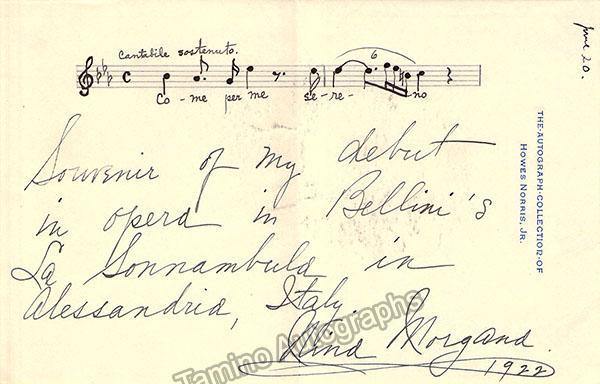 june 20.
Cantabile sostenuto.
6
C
Co - me per me se - re - no
THE·AUTOGRAPH·COLLECTION·OF
HOWES NORRIS, JR.
Souvenir of my debut
in opera in Bellini's
La Sonnambula in
Alessandria, Italy.
Nina Morgana
1922
Tamino Autographs